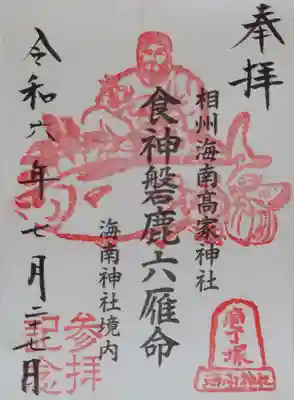 奉拝
相州海南高家神社
食神磐鹿六雁命
海南神社境内
令和六年七月二十七日
参拝記念
庖丁塚